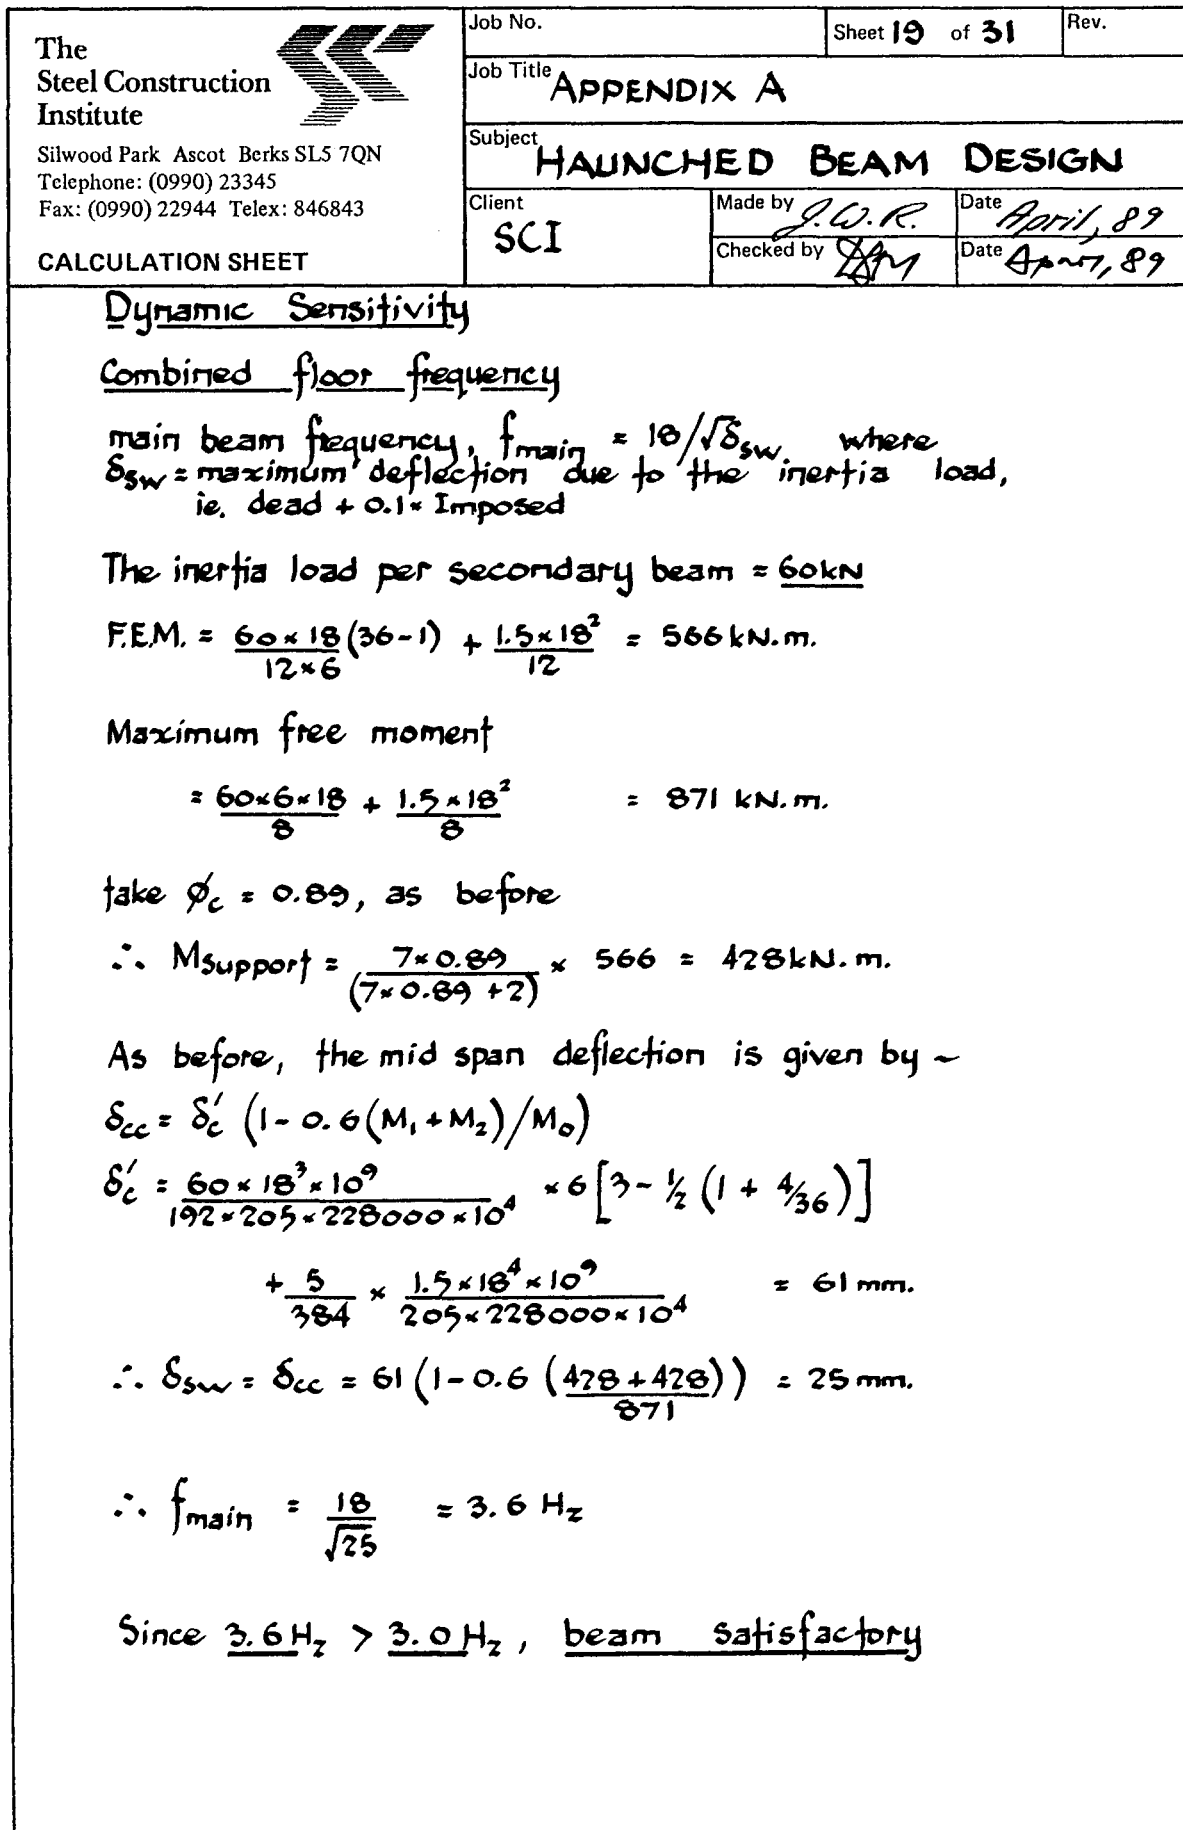 The
Steel Construction
Institute
Silwood Park Ascot Berks SL5 7QN
Telephone: (0990) 23345
Fax: (0990) 22944 Telex: 846843
CALCULATION SHEET
Job No.
Sheet 19 of 31
Rev.
Job Title APPENDIX A
Subject HAUNCHED BEAM DESIGN
Client SCI
Made by J.W.R.
Date April, 89
Checked by
Date April, 89
Dynamic Sensitivity
Combined floor frequency
main beam frequency, f_main = 18/√δ_sw where
δ_sw = maximum deflection due to the inertia load,
ie. dead + 0.1 × Imposed
The inertia load per secondary beam = 60kN
F.E.M. = (60 × 18)/(12 × 6) (36-1) + (1.5 × 18²)/12 = 566 kN.m.
Maximum free moment
= (60×6×18)/8 + (1.5 × 18²)/8 = 871 kN.m.
take ϕ'_c = 0.89, as before
∴ M_support = (7 × 0.89)/(7 × 0.89 + 2) × 566 = 428 kN.m.
As before, the mid span deflection is given by ~
δ_cc = δ'_c (1 - 0.6 (M₁ + M₂)/M₀)
δ'_c = (60 × 18³ × 10⁹)/(192 × 205 × 228000 × 10⁴) × 6 [3 - ½ (1 + 4/36)]
+ 5/384 × (1.5 × 18⁴ × 10⁹)/(205 × 228000 × 10⁴) = 61 mm.
∴ δ_sw = δ_cc = 61 (1 - 0.6 ((428 + 428)/871)) = 25 mm.
∴ f_main = 18/√25 = 3.6 Hz
Since 3.6 Hz > 3.0 Hz, beam satisfactory